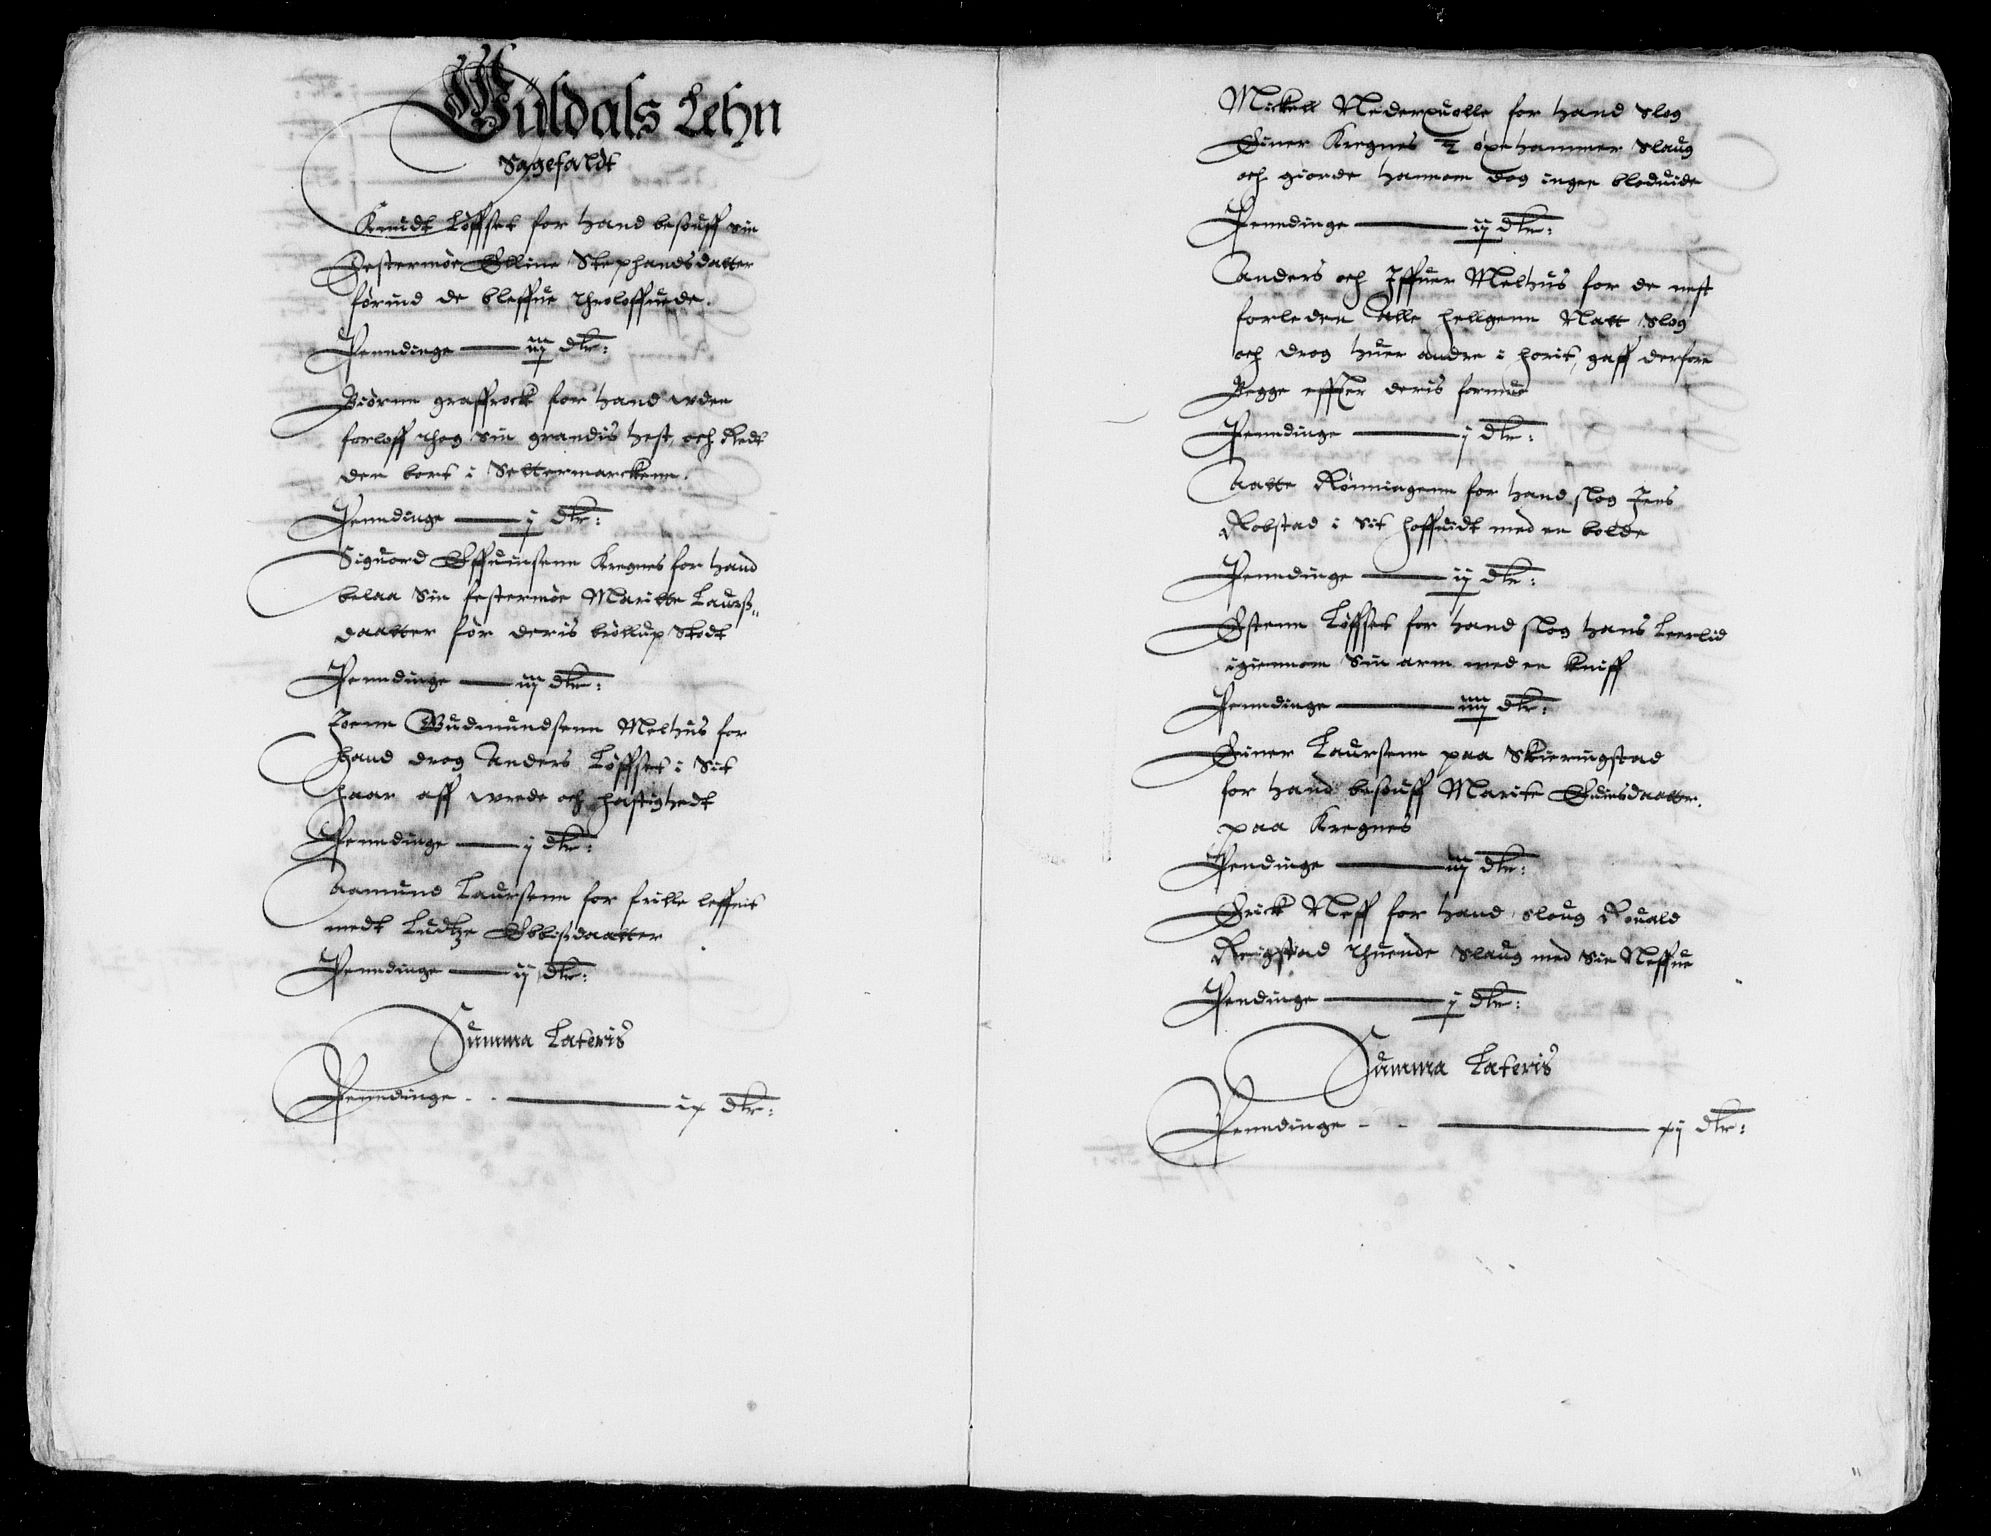 Guldals Lehn
Sagefaldt
Knudt Løffset for hand besouff sin
Festermøe Elline Stephandsdatter
førend de bleffue throloffuede.
Penndinge — iij dlr:
Biørnn graffrock for hand uden
forloff thog sin grandis hest, och Redt
den bort i Settermarckenn.
Penndinge — j dlr:
Siguord Effuindsenn Kregnes for hand
belaa sin festermøe Maritte Laurß-
daatter før deris brøllup stodt
Penndinge — iij dlr:
Joenn Gudmundsenn Melhus for
hand drog Anders Løffset i sit
haar aff wrede och hastighedt
Penndinge — j dlr:
Aamund Laursenn for frille leffnit
medt Ludtze Ebbißdaatter
Penndinge — ij dlr:
Summa Lateris
Penndinge - - — ix dlr:
Mickell Nederpuolle for hand slog
Einer Kregnes øxehammer slaug
och giorde hannom dog ingen blodvide
Penndinge — ij dlr:
Anders och Iffuer Melhus for de nest
forleden Alle hellgenn Natt slog
och drog huer andre i horit, gaff derfore
Begge effter deris formue
Penndinge — j dlr:
Aatte Rønningenn for hand slog Jens
Robstad i sit hoffuidt med en bolde
Penndinge — ij dlr:
Estenn Løffset for hand slog hans Leerlid
igiennom sin arm med en kniff
Penndinge — iiij dlr:
Einer Laursenn paa Skieringstad
for hand besouff Marite Euinsdaatter.
paa Kregnes
Pendinge — iij dlr:
Erick Neff for hand sloug Roald
Reigstad thuende slaug med sin Neffue
Pendinge — j dlr:
Summa Lateris
Penndinge - - — xij dlr: